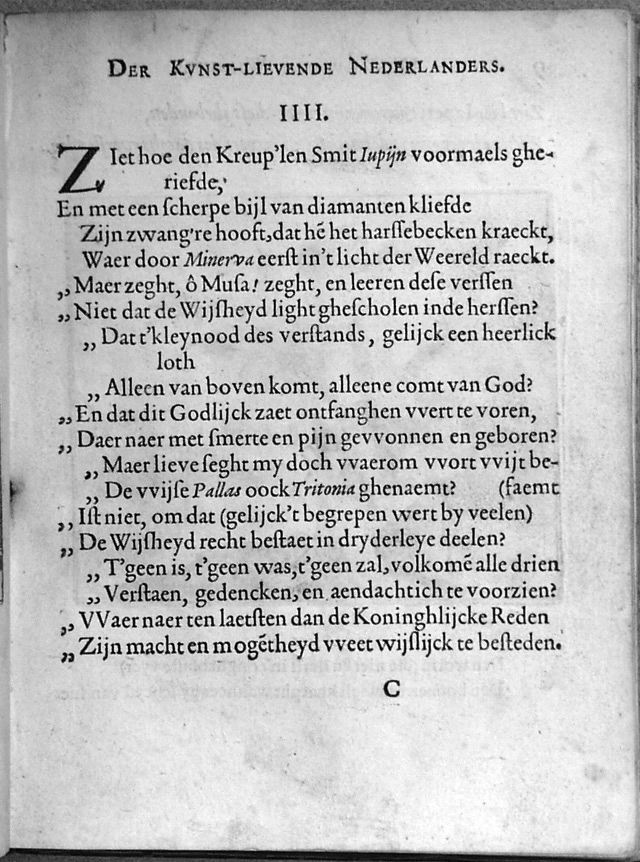 DER KVNST-LIEVENDE NEDERLANDERS.
IIII.
ZIet hoe den Kreup'len Smit Iupijn voormaels ghe-
riefde,
En met een ſcherpe bijl van diamanten kliefde
Zijn zwang're hooft, dat hẽ het harſſebecken kraeckt,
Waer door Minerva eerſt in't licht der Weereld raeckt.
,, Maer zeght, ô Muſa! zeght, en leeren deſe verſſen
,, Niet dat de Wijſheyd light gheſcholen inde herſſen?
,, Dat t'kleynood des verſtands, gelijck een heerlick
loth
,, Alleen van boven komt, alleene comt van God?
,, En dat dit Godlijck zaet ontfanghen vvert te voren,
,, Daer naer met ſmerte en pijn gevvonnen en geboren?
,, Maer lieve ſeght my doch vvaerom vvort vvijt be-
,, De vvijſe Pallas oock Tritonia ghenaemt? (faemt
,, Iſt niet, om dat (gelijck't begrepen wert by veelen)
,, De Wijſheyd recht beſtaet in dryderleye deelen?
,, T'geen is, t'geen was, t'geen zal, volkomẽ alle drien
,, Verſtaen, gedencken, en aendachtich te voorzien?
,, VVaer naer ten laetſten dan de Koninghlijcke Reden
,, Zijn macht en mogẽtheyd vveet wijſlijck te beſteden.
C